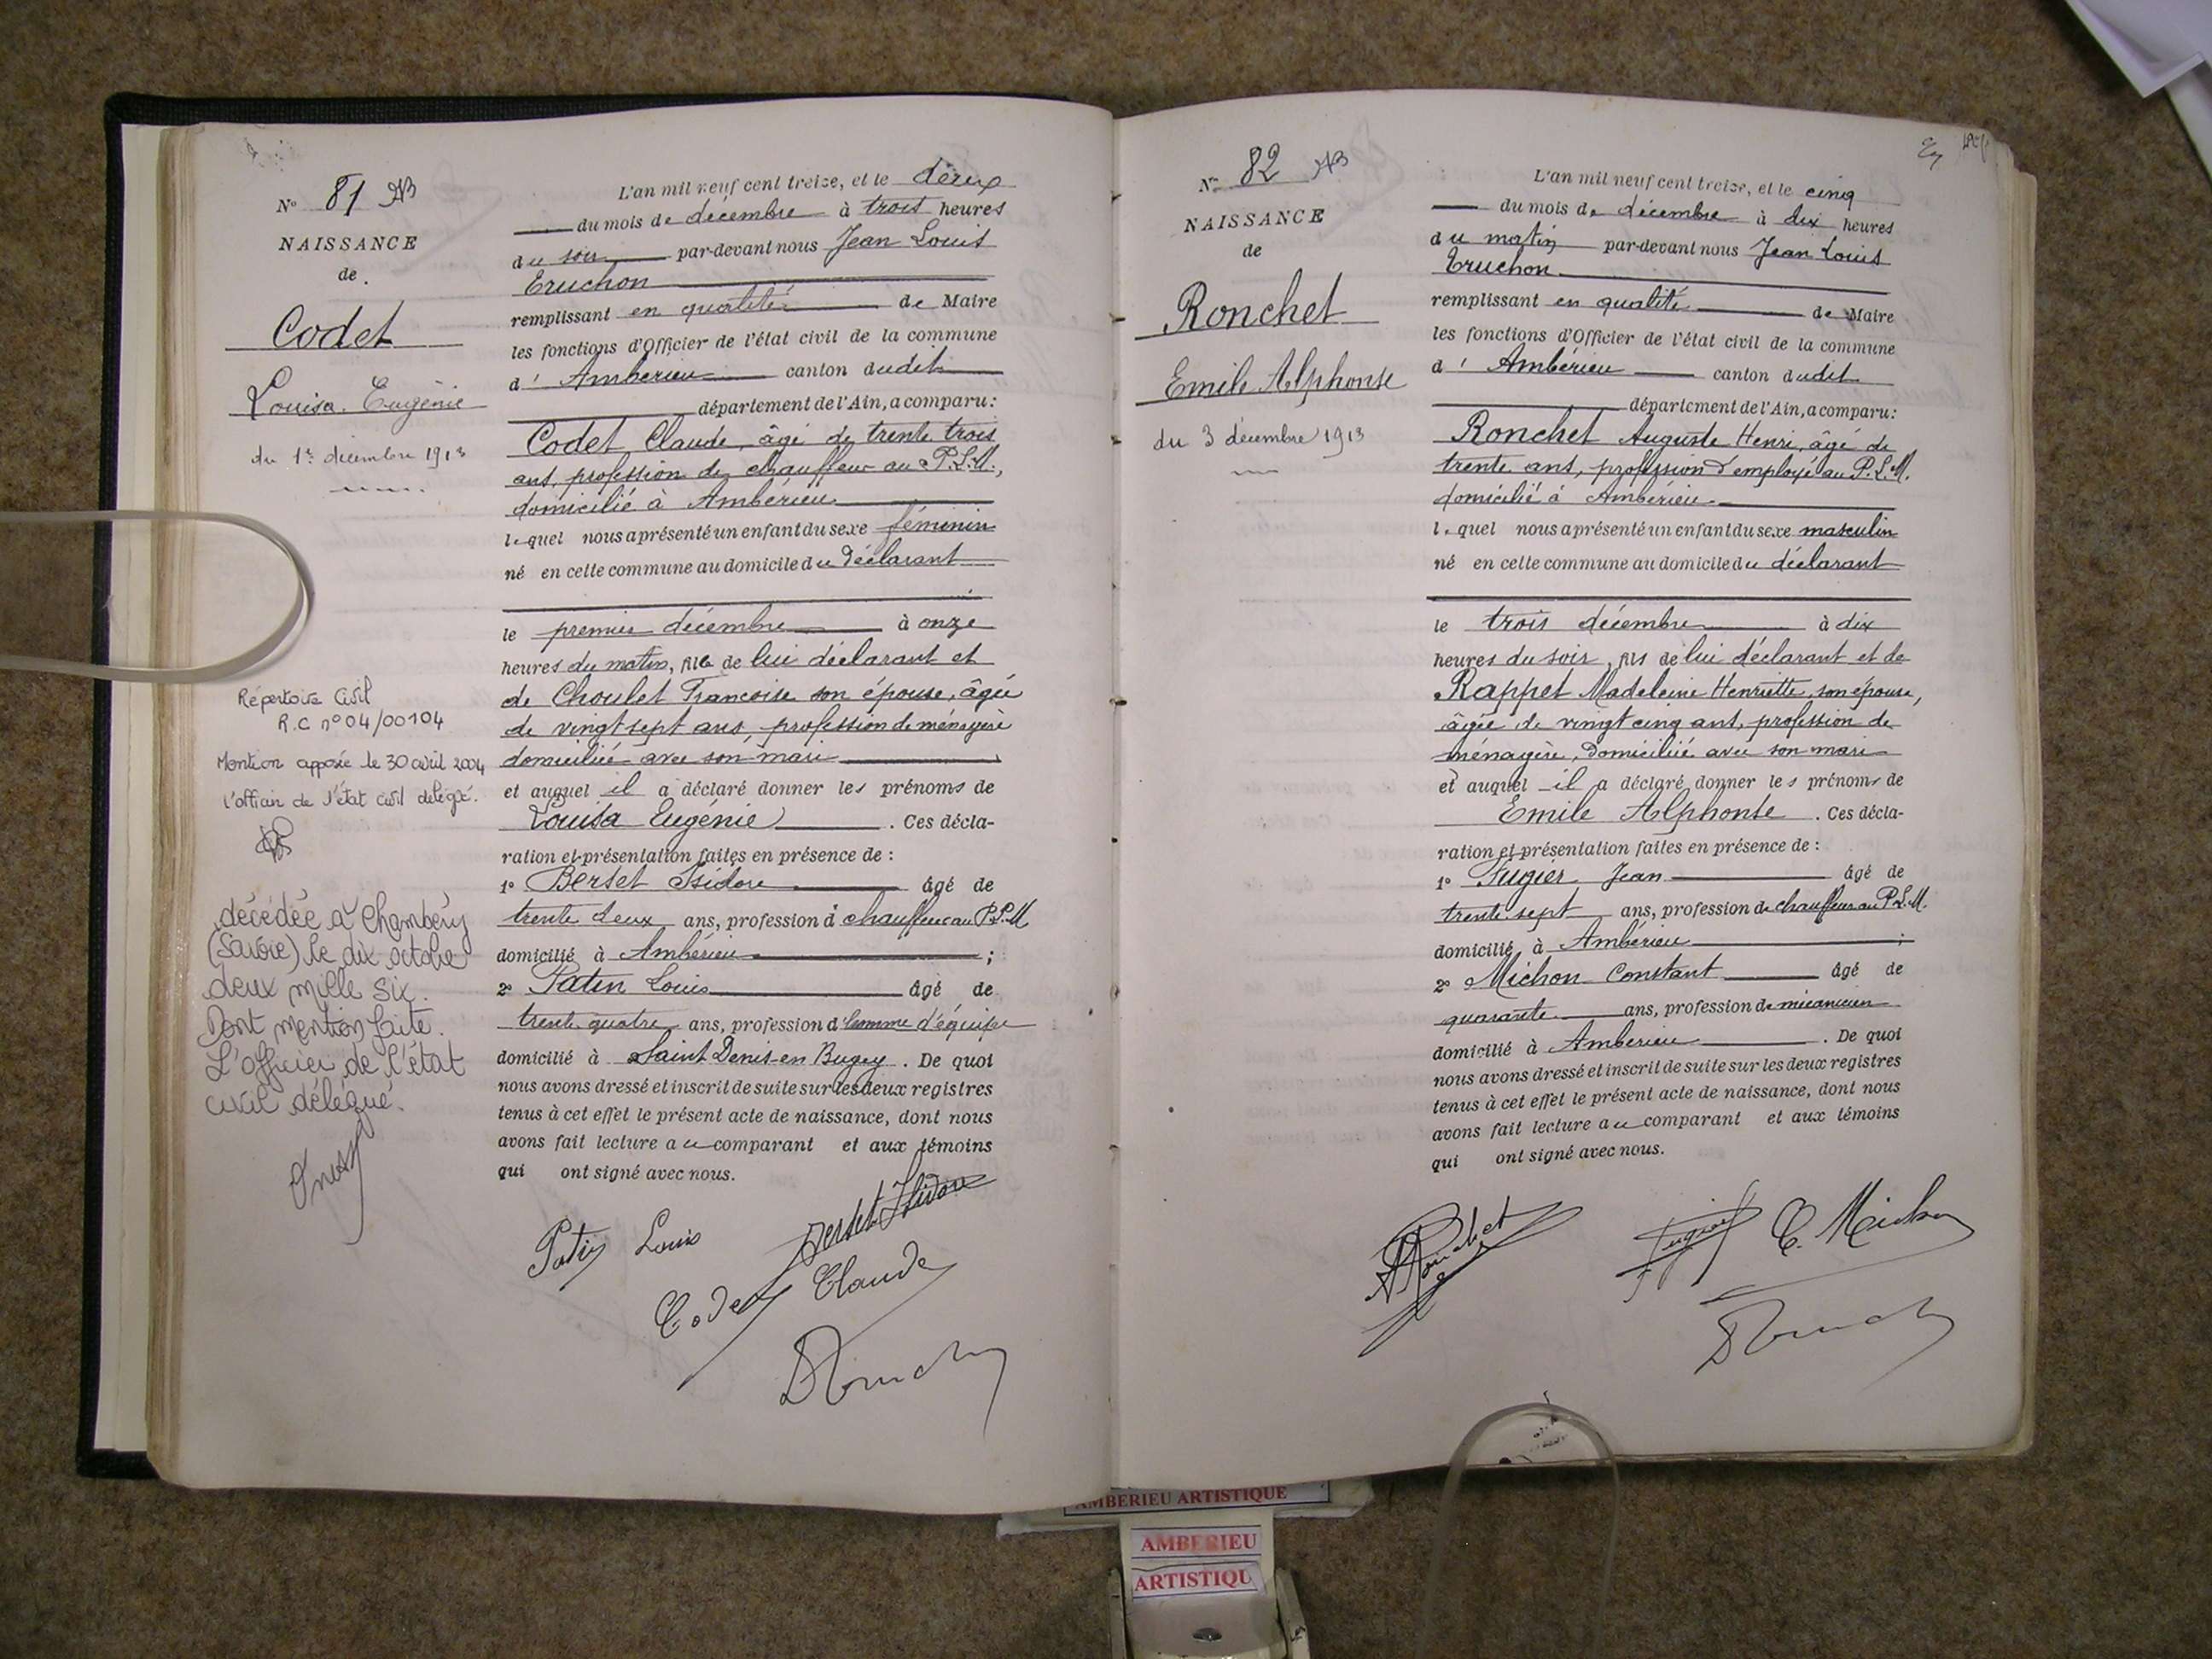 N° 81
NAISSANCE
de
Codet
Louisa Eugénie
du 1er décembre 1913
Répertoire Civil
R.C n° 04/00104
Mention apposée le 30 avril 2004
L'officier de l'état civil délégué.
décédée à Chambéry
(Savoie) le dix octobre
deux mille six.
Dont mention faite.
L'officier de l'état
civil délégué.
L'an mil neuf cent treize, et le deux
du mois de décembre à trois heures
du soir par-devant nous Jean Louis
Eruchon
remplissant en qualité de Maire
les fonctions d'Officier de l'état civil de la commune
d' Ambérieu canton dudit
département de l'Ain, a comparu:
Codet Claude, âgé de trente trois
ans, profession de chauffeur au P.L.M.,
domicilié à Ambérieu
lequel nous a présenté un enfant du sexe féminin
né en cette commune au domicile du déclarant
le premier décembre à onze
heures du matin, fille de lui déclarant et
de Choulet Françoise son épouse, âgée
de vingt sept ans, profession de ménagère
domiciliée avec son mari
et auquel il a déclaré donner les prénoms de
Louisa Eugénie. Ces décla-
ration et présentation faites en présence de :
1° Berset Isidore âgé de
trente deux ans, profession d chauffeur au P.L.M
domicilié à Ambérieu ;
2° Patin Louis âgé de
trente quatre ans, profession d'homme d'équipe
domicilié à Saint Denis-en Bugey. De quoi
nous avons dressé et inscrit de suite sur les deux registres
tenus à cet effet le présent acte de naissance, dont nous
avons fait lecture au comparant et aux témoins
qui ont signé avec nous.
Patin Louis Berset Isidore
Codet Claude
N° 82
NAISSANCE
de
Ronchet
Emile Alphonse
du 3 décembre 1913
L'an mil neuf cent treize, et le cinq
du mois de décembre à dix heures
du matin par-devant nous Jean Louis
Eruchon
remplissant en qualité de Maire
les fonctions d'Officier de l'état civil de la commune
d' Ambérieu canton dudit
département de l'Ain, a comparu:
Ronchet Auguste Henri, âgé de
trente ans, profession d'employé au P.L.M.
domicilié à Ambérieu
lequel nous a présenté un enfant du sexe masculin
né en cette commune au domicile du déclarant
le trois décembre à dix
heures du soir, fils de lui déclarant et de
Rappet Madeleine Henriette, son épouse,
âgée de vingt cinq ans, profession de
ménagère, domiciliée avec son mari
et auquel il a déclaré donner les prénoms de
Emile Alphonse. Ces décla-
ration et présentation faites en présence de :
1° Fugier Jean âgé de
trente sept ans, profession de chauffeur au P.L.M.
domicilié à Ambérieu ;
2° Michon Constant âgé de
quarante ans, profession de mécanicien
domicilié à Ambérieu. De quoi
nous avons dressé et inscrit de suite sur les deux registres
tenus à cet effet le présent acte de naissance, dont nous
avons fait lecture au comparant et aux témoins
qui ont signé avec nous.
Ronchet Fugier C. Michon
AMBERIEU ARTISTIQUE
AMBERIEU
ARTISTIQU